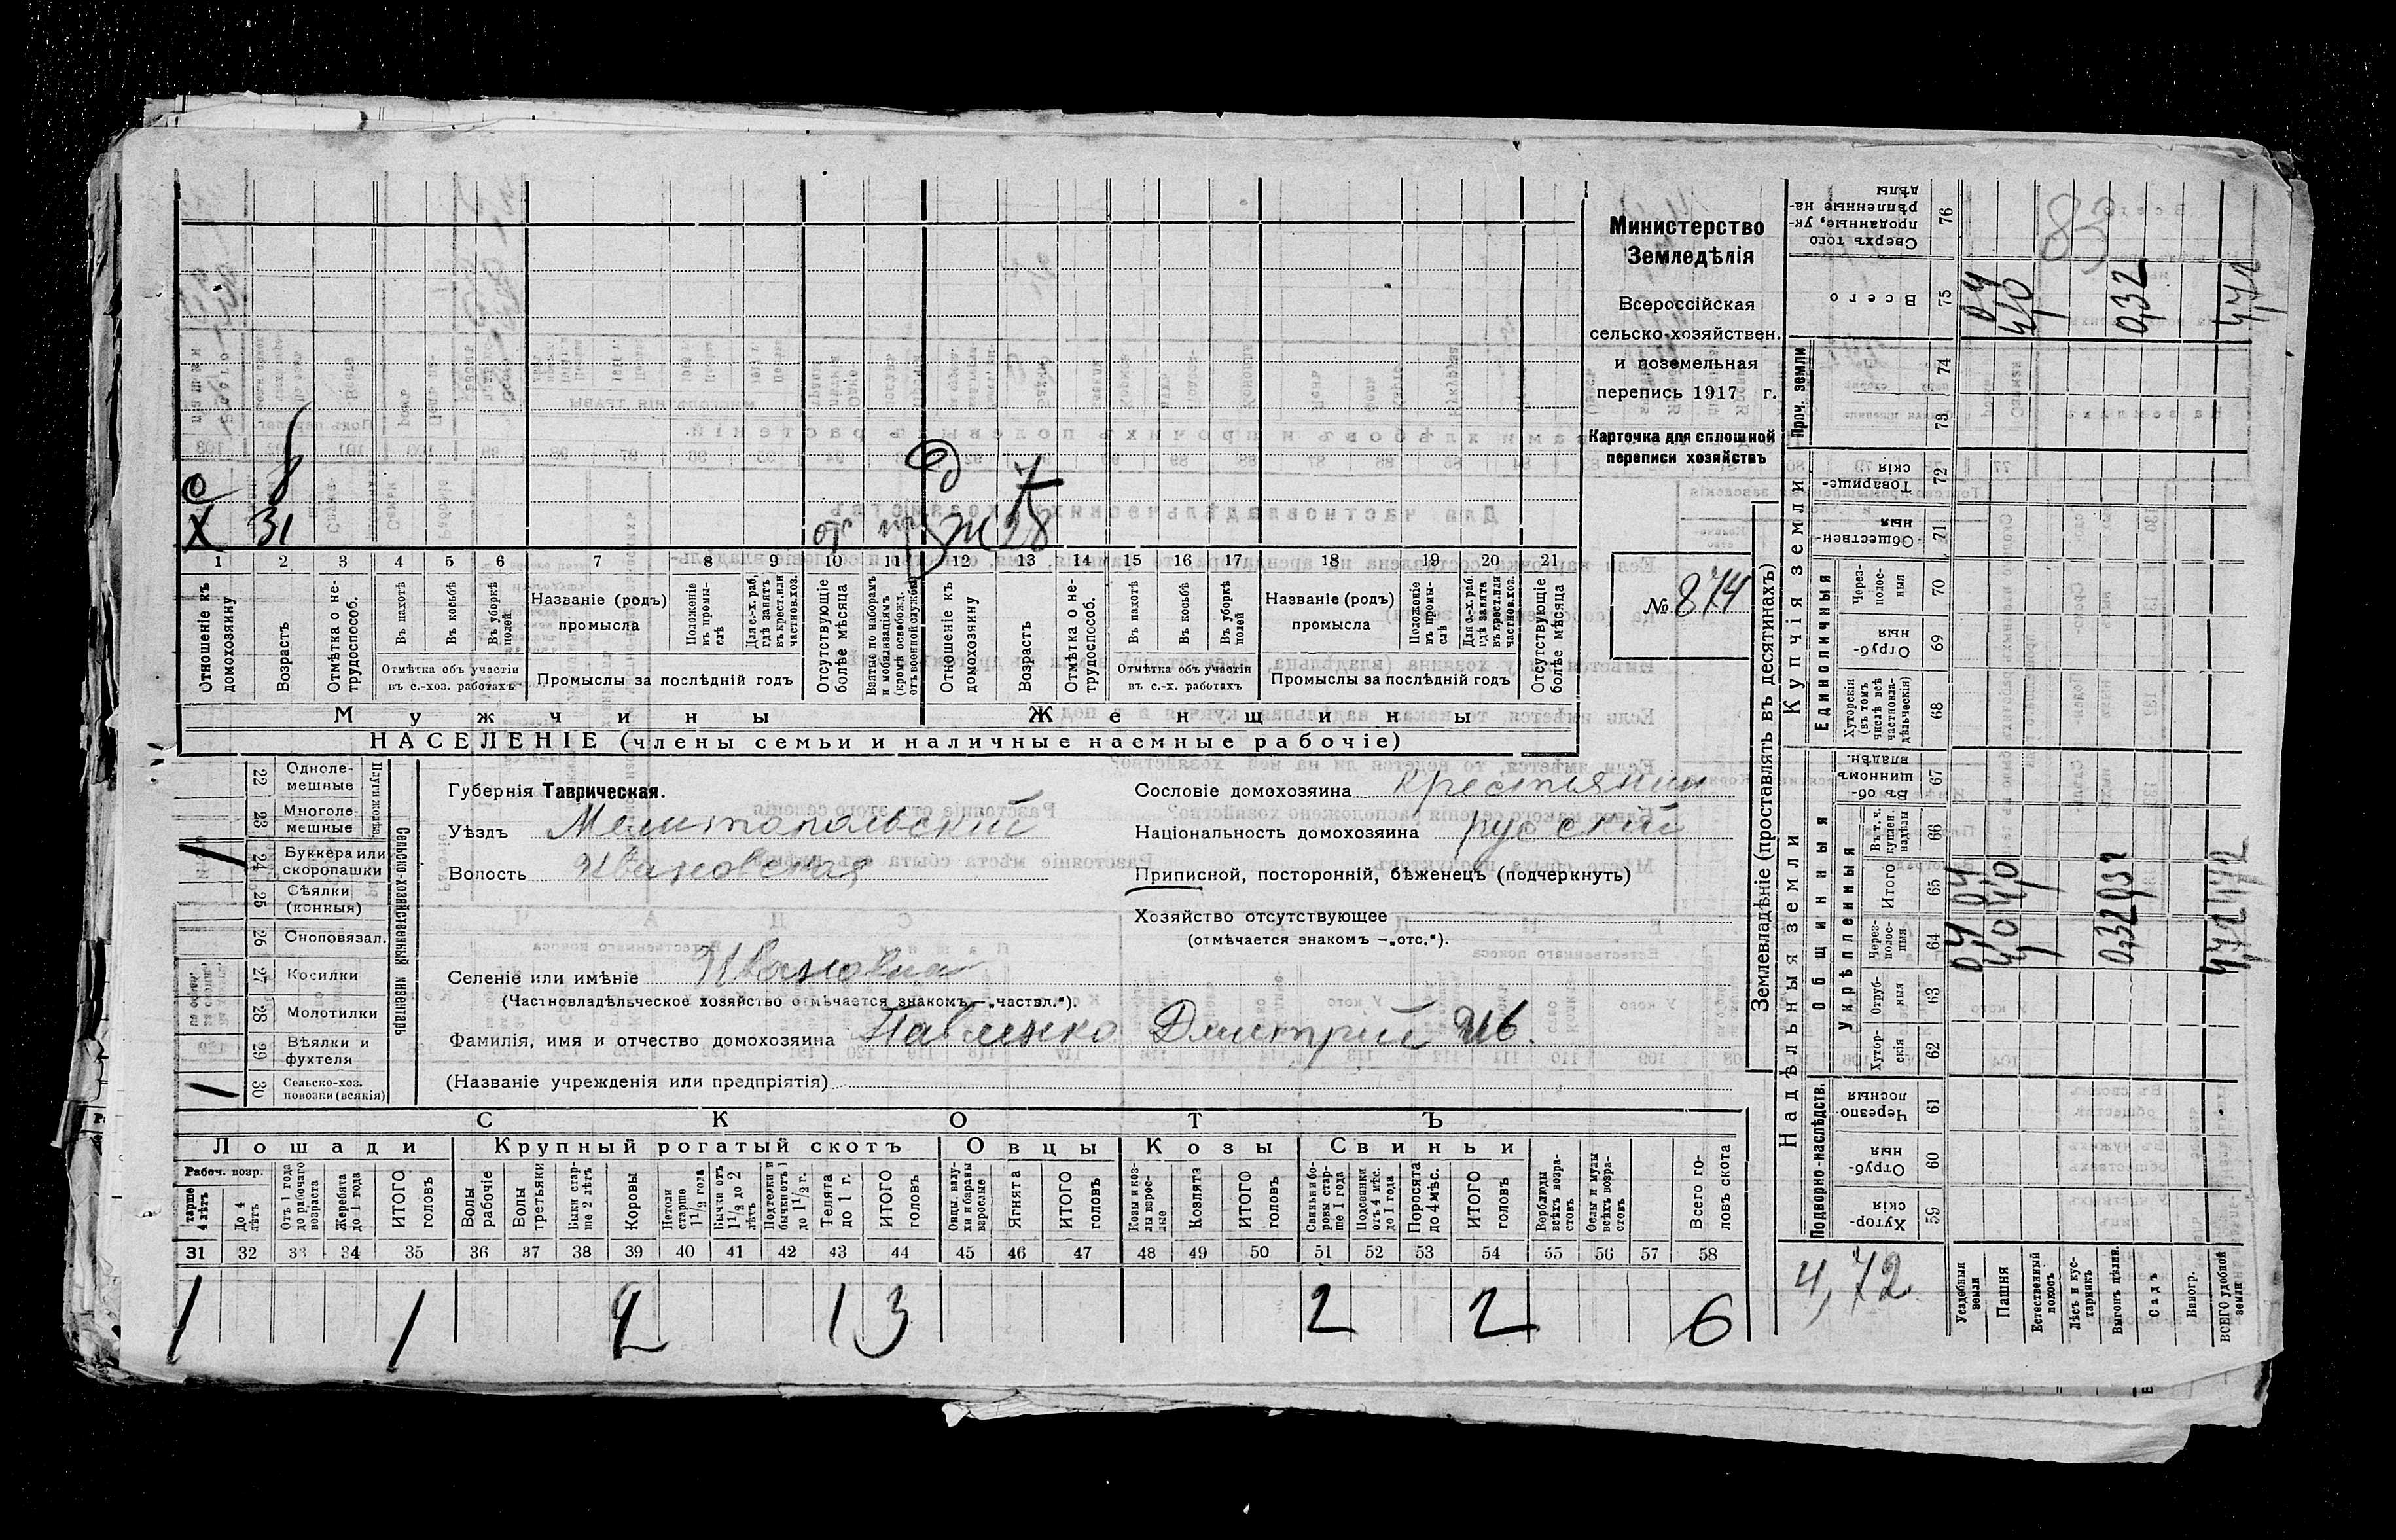 Министерство
Земледѣлія
Всероссійская
сельско-хозяйствен.
и поземельная
перепись 1917 г.
Карточка для сплошной
переписи хозяйствъ
№ 874
с 8 д 7
х 31 от ж 28
1 2 3 4 5 6 7 8 9 10 11 12 13 14 15 16 17 18 19 20 21
Отношеніе къ домохозяину
Возрастъ
Отмѣтка о нетрудоспособ.
Въ пахотѣ
Въ косьбѣ
Въ уборкѣ полей
Отмѣтка объ участіи въ с.-хоз. работахъ
Названіе (родъ) промысла
Положеніе въ промыслѣ
Для с.-х. раб. гдѣ занятъ въ крест. или частнов. хоз.
Промыслы за послѣдній годъ
Отсутствующіе болѣе мѣсяца
Взятые по наборамъ и мобилизаціямъ (кромѣ освобожд. отъ военной службы)
Отношеніе къ домохозяину
Возрастъ
Отмѣтка о нетрудоспособ.
Въ пахотѣ
Въ косьбѣ
Въ уборкѣ полей
Отмѣтка объ участіи въ с.-х. работахъ
Названіе (родъ) промысла
Положеніе въ промыслѣ
Для с.-х. раб. гдѣ занята въ крест. или частнов. хоз.
Промыслы за послѣдній годъ
Отсутствующіе болѣе мѣсяца
Мужчины Женщины
НАСЕЛЕНІЕ (члены семьи и наличные наемные рабочіе)
22 Однолемешные
23 Многолемешные
Плуги железн.
24 Буккера или скоропашки 1
25 Сѣялки (конныя)
26 Сноповязал.
27 Косилки
28 Молотилки
29 Вѣялки и фухтеля
30 Сельско-хоз. повозки (всякія) 1
Сельско-хозяйственный инвентарь
Губернія Таврическая.
Уѣздъ Мелитопольский
Волость Ивановская
Сословіе домохозяина крестьянин
Національность домохозяина русский
Приписной, посторонній, бѣженецъ (подчеркнуть)
Хозяйство отсутствующее
(отмѣчается знакомъ —„отс.“).
Селеніе или имѣніе Ивановка
(Частновладѣльческое хозяйство отмѣчается знакомъ—„частвл.“).
Фамилія, имя и отчество домохозяина Павленко Дмитрий Ив.
(Названіе учрежденія или предпріятія)
СКОТЪ
Лошади Крупный рогатый скотъ Овцы Козы Свиньи
Рабоч. возр.
тарше 4 лѣтъ
До 4 лѣтъ
Отъ 1 года до рабочаго возраста
Жеребята до 1 года
ИТОГО головъ
Волы рабочіе
Волы третьяки
Быки старше 2 лѣтъ
Коровы
Нетели старше 1½ года
Бычки отъ 1½ до 2 лѣтъ
Подтелки и бычки отъ 1 до 1½ г.
Телята до 1 г.
ИТОГО головъ
Овцы, валухи и бараны взрослые
Ягнята
ИТОГО головъ
Козы и козлы взрослые
Козлята
ИТОГО головъ
Свиньи и боровы старше 1 года
Подсвинки отъ 4 мѣс. до 1 года
Поросята до 4 мѣс.
ИТОГО головъ
Верблюды всѣхъ возрастовъ
Ослы и мулы всѣхъ возрастовъ
Всего головъ скота
31 32 33 34 35 36 37 38 39 40 41 42 43 44 45 46 47 48 49 50 51 52 53 54 55 56 57 58
1 1 2 1 3 2 2 6
Землевладѣніе (проставлять въ десятинахъ)
Надѣльныя земли Купчія земли Проч. земли
Подворно-наслѣдств.
Общинныя
Укрѣпленныя
Единоличныя
Хуторскія 59
Отрубныя 60
Черезполосныя 61
Хуторскія 62
Отрубныя 63
Черезполосныя 64
Итого 65
Въ т. ч. куплен. надѣлы 66
Въ общинномъ владѣн. 67
Хуторскія (въ томъ числѣ всѣ частновладѣльческія) 68
Отрубныя 69
Черезполосныя 70
Общественныя 71
Товарищескія 72
73
74
Всего 75
Сверхъ того проданные, укрѣпленные надѣлы 76
4,72
Усадебныя земли 0,4 0,4 0,4
Пашня 4,0 4,0 4,0
Естественный покосъ
Лѣсъ и кустарникъ
Выгонъ цѣлин. 0,32 0,32 0,32
Садъ
Виногр.
ВСЕГО удобной земли 4,72 4,72 4,72
83